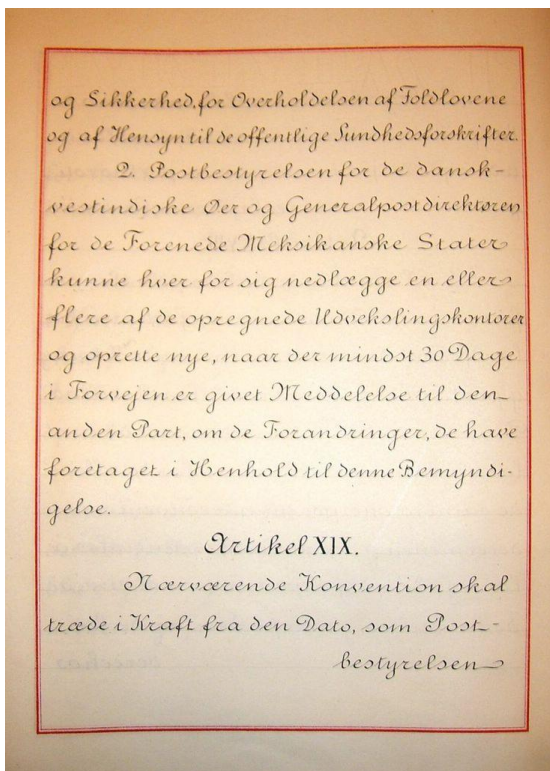 og Sikkerhed, for Overholdelsen af Toldlovene
og af Hensyn til de offentlige Sundhedsforskrifter.
2. Postbestyrelsen for de dansk-
vestindiske Øer og Generalpostdirektøren
for de Forenede Meksikanske Stater
kunne hver for sig nedlægge en eller
flere af de opregnede Udvekslingskontorer
og oprette nye, naar der mindst 30 Dage
i Forvejen er givet Meddelelse til den
anden Part, om de Forandringer, de have
foretaget i Henhold til denne Bemyndi-
gelse.
Artikel XIX.
Nærværende Konvention skal
træde i Kraft fra den Dato, som Post-
bestyrelsen